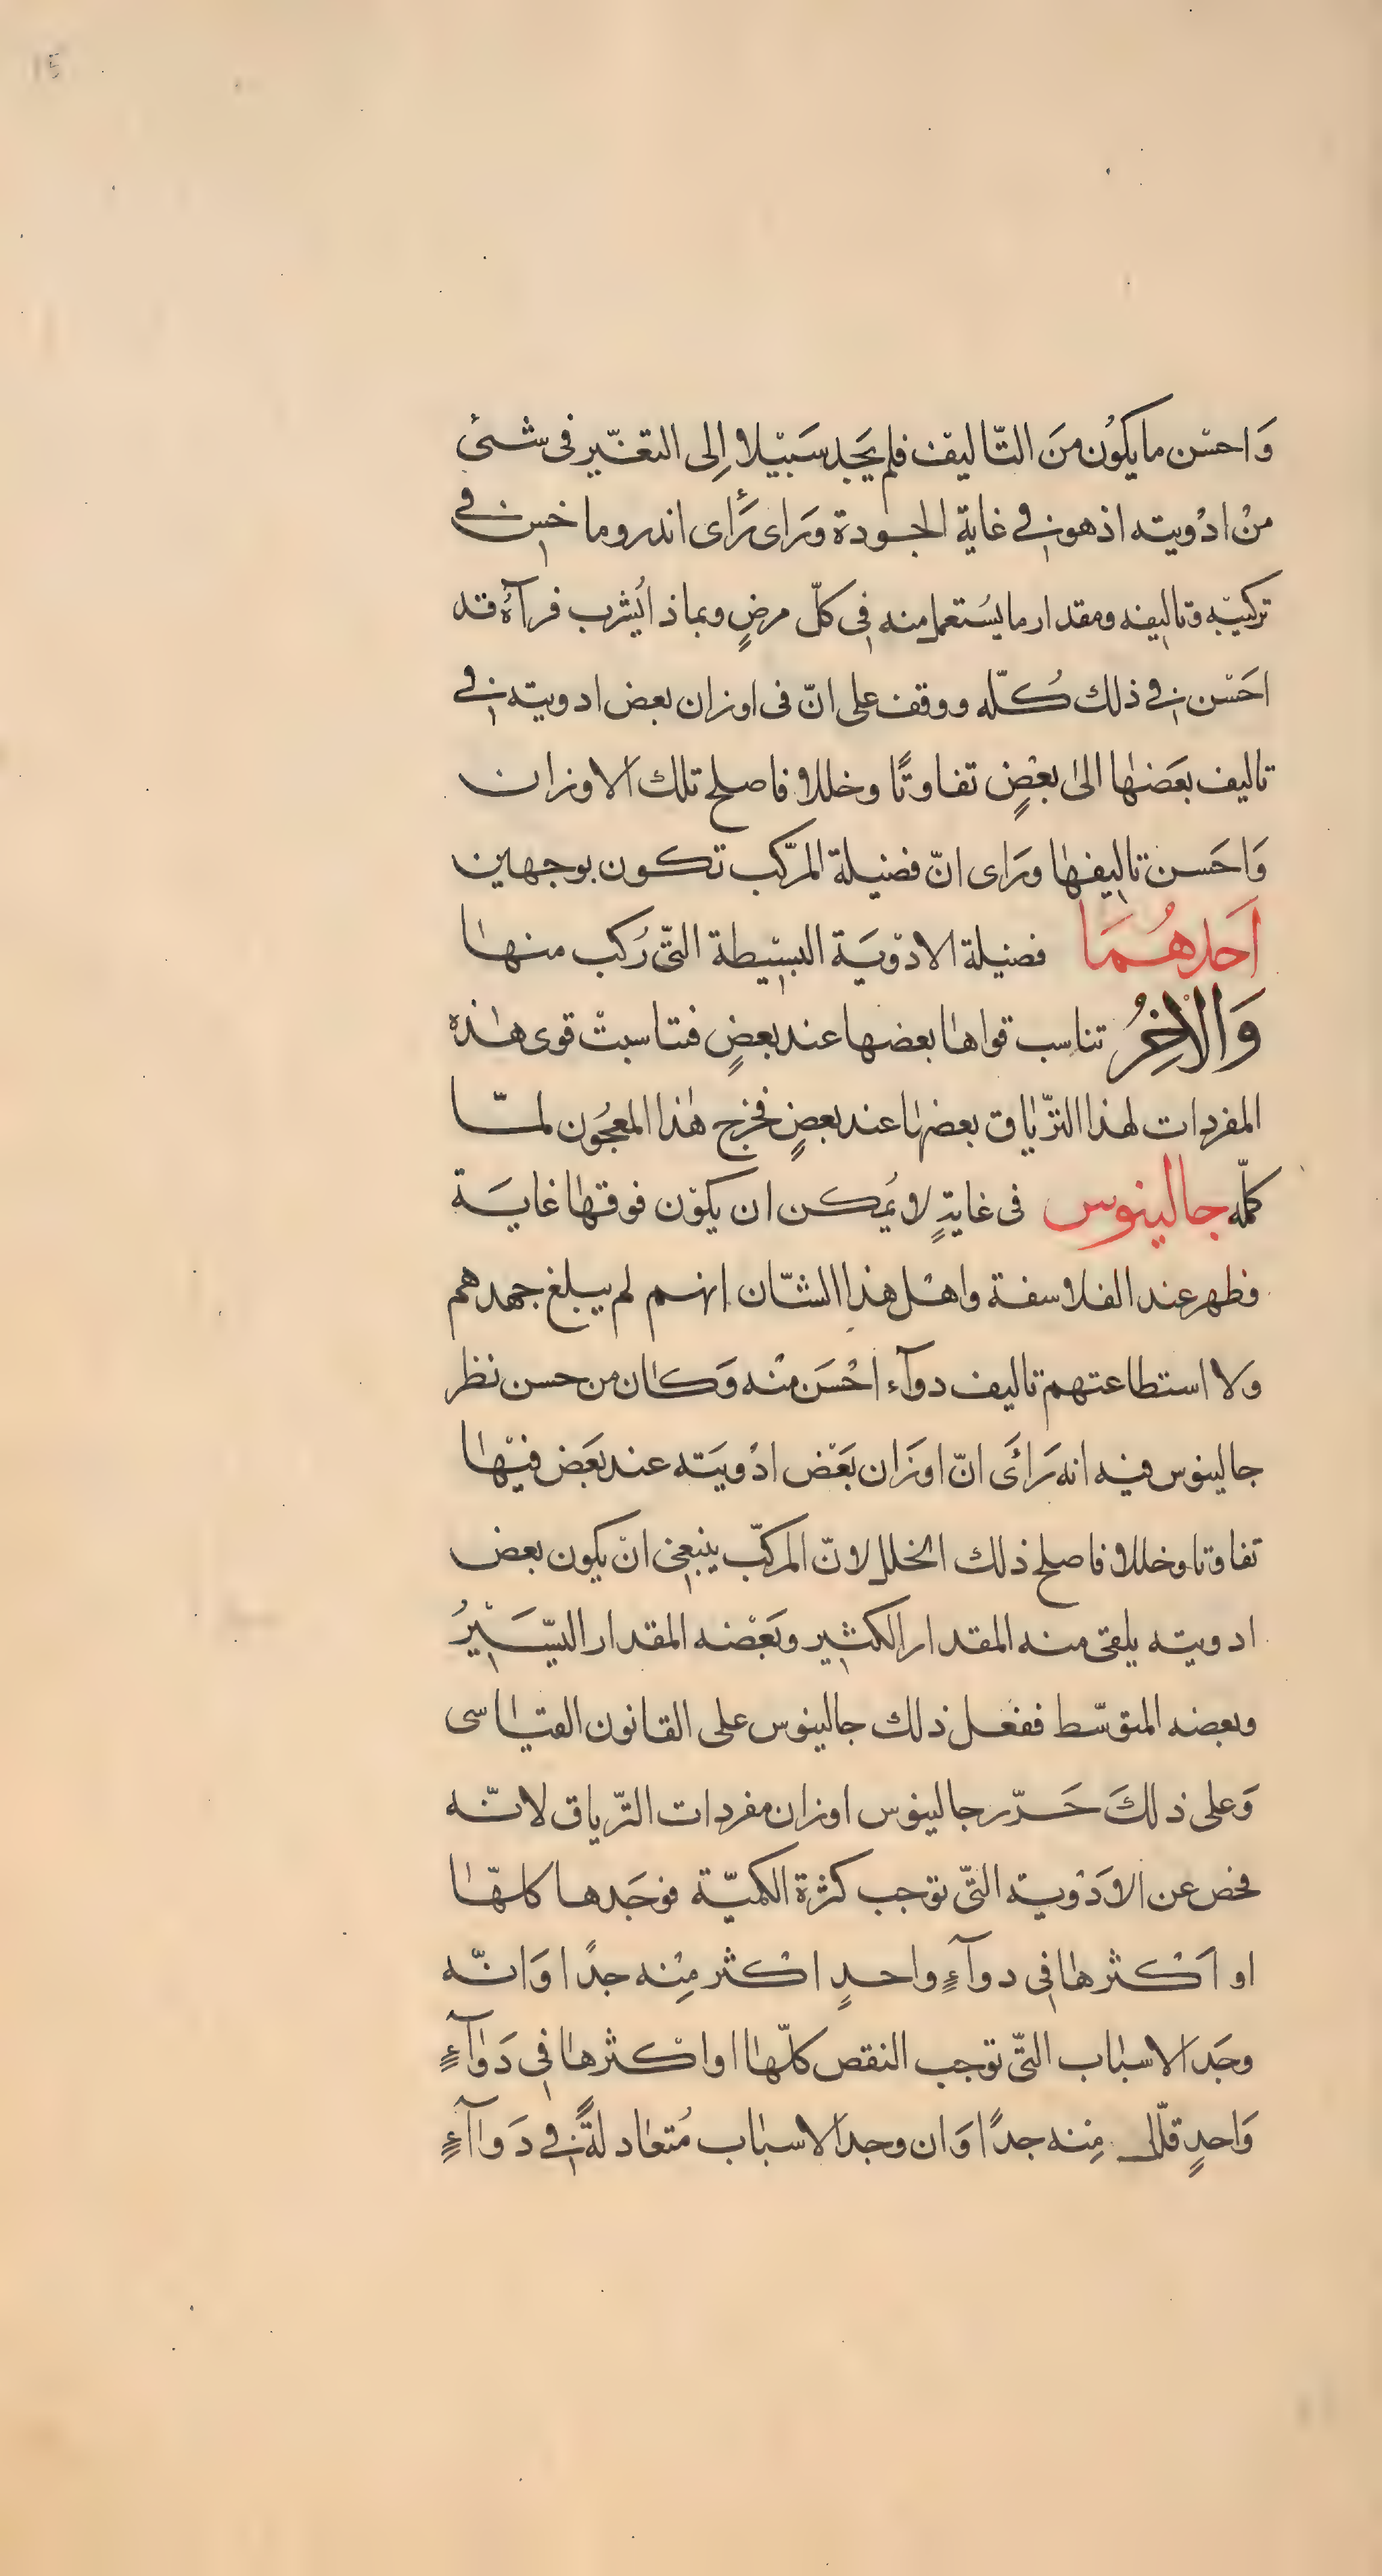 15
وَاحسْن ما يكوُن منَ التّاليف فلم يَجد سَبيْلا اِلى التغيّير فى شىئ
منْ ادْويته اذ هو فى غاية الجودة ورَاى رَأى اندروماخس فى
تركيبْه وتاليفه ومقدار ما يسُتعمل منه فى كلّ مرضٍ وبماذا يُشرب فرآهُ قد
احَسْن فى ذلك كُلّه ووقف على انّ فى اوزان بعض ادويته فى
تاليف بعَضهٰا الىٰ بعْضٍ تفاوتًا وخللا فاصلح تلك الاوزان
وَاحَسن تاليفهٰا ورَاى انّ فضيلة المركّب تكون بوجهين
اَحدهُمَا فضيلة الادْويَة البسيْطة التّى رُكب منهٰا
وَالاٰخِرُ تناسب قواهٰا بعضها عند بعضٍ فتناسبتْ قوى هٰذه
المفردات لهذا الترّيٰاق بعضهٰا عند بعضٍ فخرج هٰذا المعجُون لمّا
كلّه جالينوس فى غايةٍ لا يُمكن ان يكوْن فوقهٰا غايَة
فظهر عند الفلاسفة واهْل هذا الشّان انهم لم يبلغ جهدهم
ولا استطاعتهم تاليف دوآء احْسَن منْه وَكان من حسن نظر
جالينوس فيه انه رَأىَ انّ اوزَان بَعْض ادْويَته عند بَعَض فيْهٰا
تفاوتا وخللا فاصلح ذلك الخلل لانّ المركّب ينبغى انْ يكون بعض
ادويته يلقى منه المقدار الكثير وبَعْضه المقدار اليسّيَرُ
وبعضه المتوسّط ففعل ذلك جالينوس على القانون القيٰاسى
وَعلى ذلكَ حَرّر جالينوس اوزان مفردات الترّياق لانّه
فحص عن الاَدْوية التّى توجب كثرة الكميّة فوجَدها كلهّٰا
او اَكْثرهٰا فى دوآءٍ واحدٍ اكْثر مِنْه جدًا وَانّه
وجَد الاسبٰاب التّى توجب النقص كلّهٰا او اكْثرهٰا فى دَوٰآءٍ
وَاحدٍ قلّل مِنْه جدًا وَان وجد الاسبٰاب مُتعٰادلةً فى دَوآءٍ